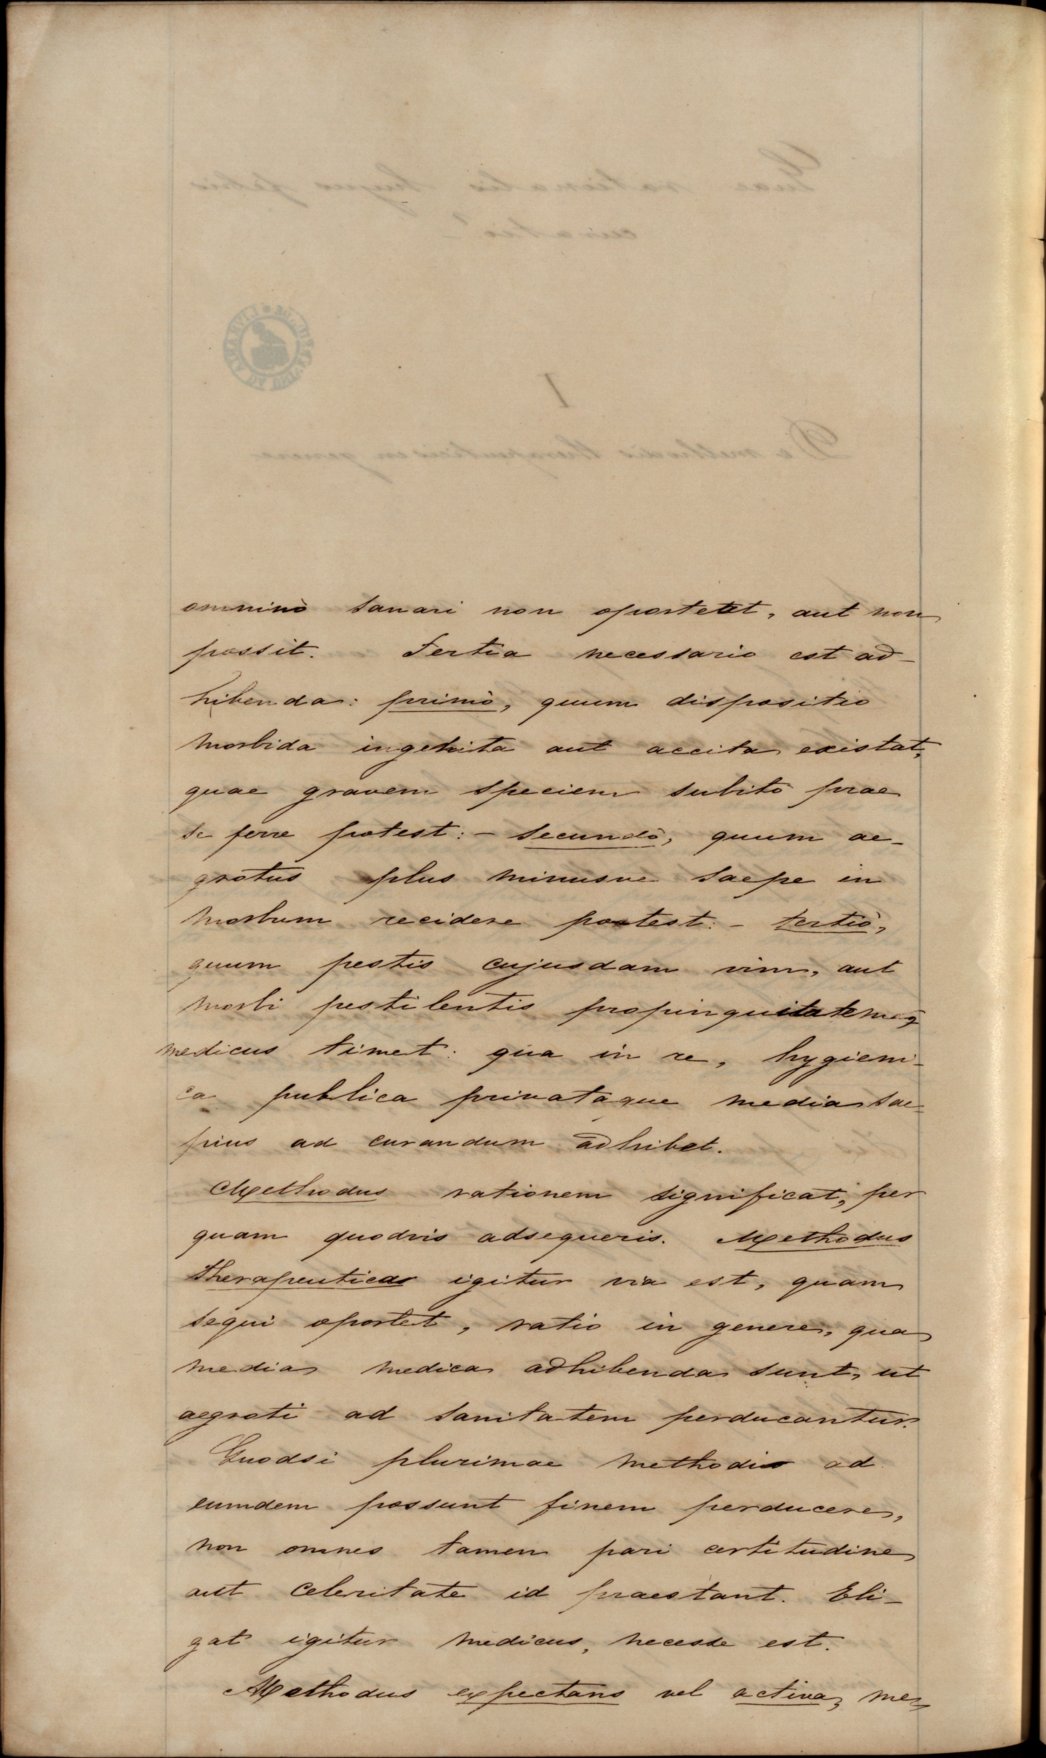 omninò sanari non oportetet, aut non
possit. Tertia necessario est ad-
hibenda: primò, quum dispositio
morbida ingenita aut accita existat,
quae gravem speciem subitò prae
se ferre potest: - secundò, quum ae-
grotus plus minusve saepe in
morbum recidere potest: - tertiò,
quum pestis cujusdam vim, aut
morbi pestilentis propinquitatem
medicus timet: qua in re, hygieni-
ca publica privataque media sae-
pius ad curandum adhibet.
Methodus rationem significat, per
quam quodvis adsequeris. Methodus
therapeutica igitur via est, quam
sequi oportet, ratio in genere, qua
media medica adhibenda sunt, ut
aegroti ad sanitatem perducantur.
Quodsi plurimae methodi ad
eumdem possunt finem perducere,
non omnes tamen pari certitudine
aut celeritate id praestant. Eli-
gat igitur medicus, necesse est.
Methodus expectans vel activa, me-